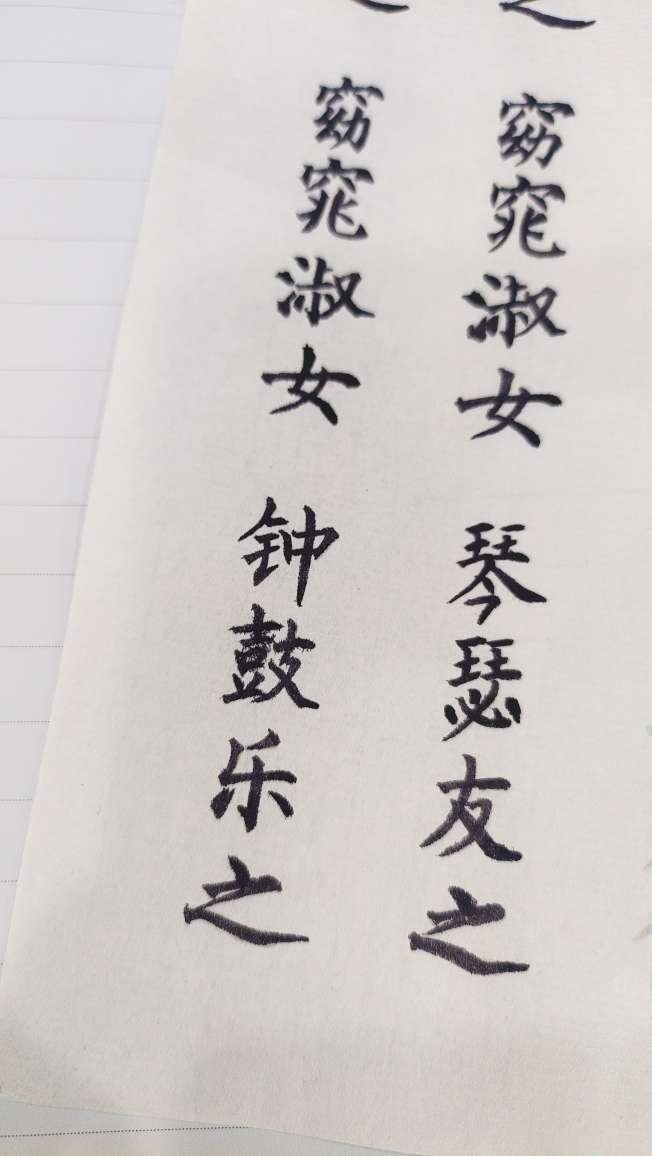 之
窈窕淑女 琴瑟友之
之
窈窕淑女 钟鼓乐之